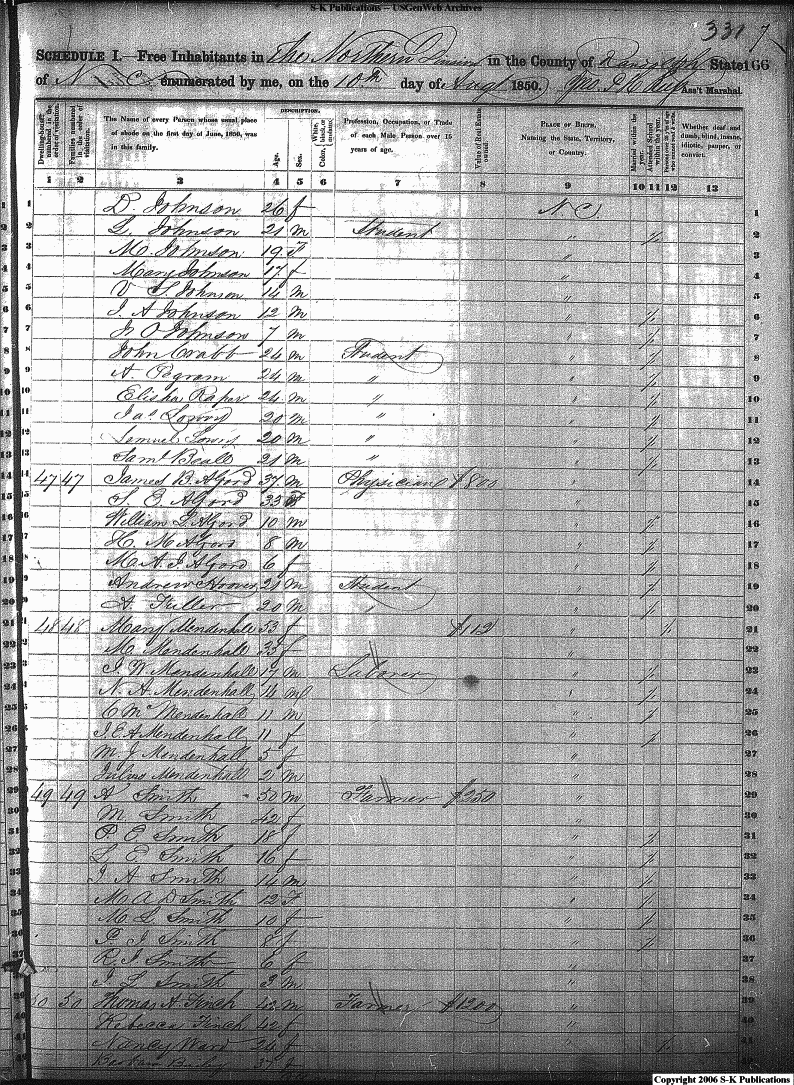 S-K Publications – USGenWeb Archives
331 7
SCHEDULE I.—Free Inhabitants in The Northern Division in the County of Randolph State 166
of N C enumerated by me, on the 10th day of Augt 1850. Ass't Marshal.
Dwelling-houses numbered in the order of visitation. Families numbered in the order of visitation. The Name of every Person whose usual place of abode on the first day of June, 1850, was in this family. DESCRIPTION. Age. Sex. Color, White, black, or mulatto. Profession, Occupation, or Trade of each Male Person over 15 years of age. Value of Real Estate owned. PLACE OF BIRTH, Naming the State, Territory, or Country. Married within the year. Attended School within the year. Whether deaf and dumb, blind, insane, idiotic, pauper, or convict.
1 2 3 4 5 6 7 8 9 10 11 12 13
1 D. Johnson 26 f N C 1
2 L. Johnson 21 m Student " / 2
3 M. Johnson 19 F " 3
4 Mary Johnson 17 f " 4
5 V S Johnson 14 m " 5
6 J A Johnson 12 m " / 6
7 O Johnson 7 m " / 7
8 John Crabb 24 m Student " / 8
9 A. Pegram 24 m " " / 9
10 Elisha Raper 24 m " " / 10
11 Jas Lowry 20 m " " / 11
12 Samuel Lowry 20 m " " / 12
13 Saml Beall 21 m " " / 13
14 47 47 James B. Alford 37 m Physician $800 " 14
15 S E Alford 35 F " 15
16 William Alford 10 m " / 16
17 H. M Alford 8 m " / 17
18 M A J Alford 6 f " / 18
19 Andrew Hoover 21 m Student " / 19
20 A. Fuller 20 m " " / 20
21 48 48 Mary Mendenhall 53 f $112 " / 21
22 M. Mendenhall 35 f " 22
23 J W. Mendenhall 17 m Laborer " / 23
24 N. A Mendenhall 14 " / 24
25 C M Mendenhall 11 m " / 25
26 J. E. A Mendenhall 11 f " / 26
27 M J Mendenhall 5 f " 27
28 Julius Mendenhall 2 m " 28
29 49 49 A Smith 50 m Farmer $250 " 29
30 M Smith 42 f " 30
31 P E Smith 18 f " / 31
32 L E Smith 16 f " / 32
33 J A Smith 14 m " / 33
34 M A D Smith 12 F " / 34
35 M L Smith 10 f " / 35
36 P J Smith 8 f " / 36
37 R. J Smith 6 f " 37
38 J L Smith 3 m " 38
39 50 50 Thomas A Finch 42 m Farmer $1200 " 39
40 Rebecca Finch 42 f " 40
41 Nancy Ward 24 f " / 41
37 f
Copyright 2006 S-K Publications